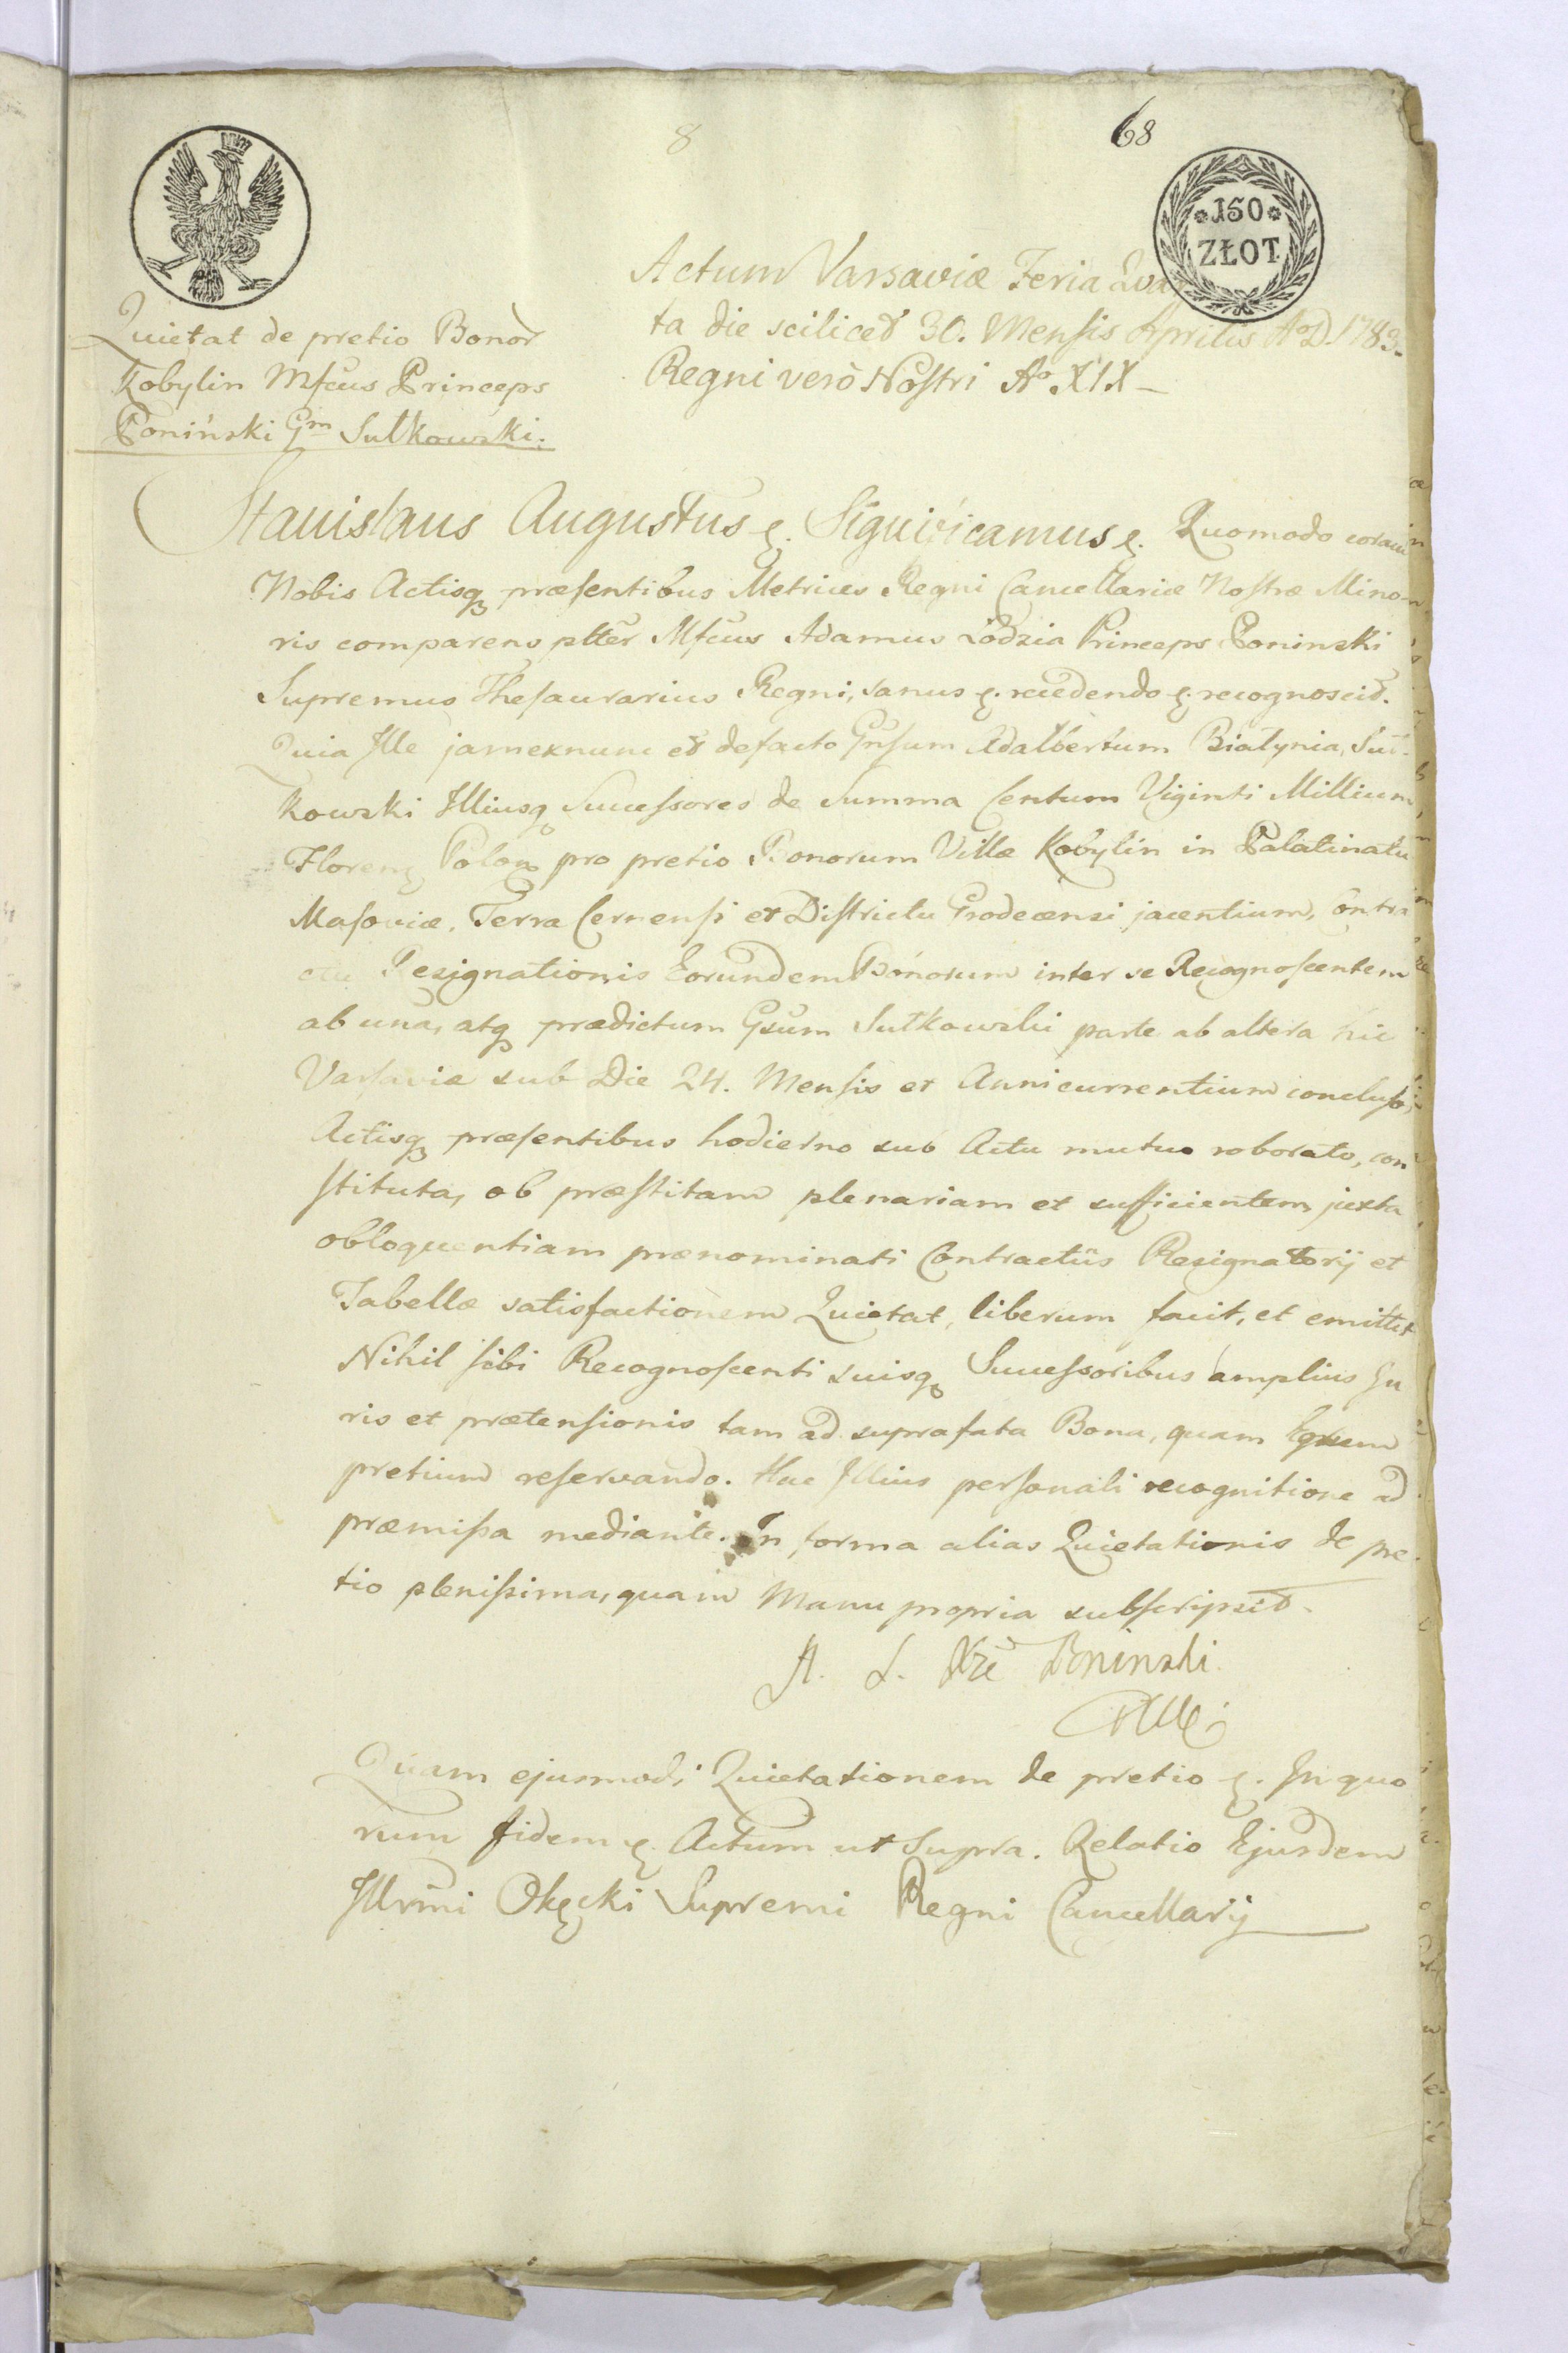 8
68
150
ZŁOT
Actum Varsaviæ Feria Quar
ta die scilicet 30. Mensis Aprilis AoD. 1783.
Regni verò Nostri Ao XIX
Quietat de pretio Bonor
Kobylin Mfcus Princeps
Poniński Gm Sułkowski.
Stanislaus Augustus &. Significamus &. Quomodo coram
Nobis Actisq præsentibus Metrices Regni Cancellariæ Nostræ Mino
ris comparens plter Mfcus Adamus Łodzia Princeps Poninski
Supremus Thesaurarius Regni, sanus &. recedendo &. recognoscit.
Quia Ille jamexnunc et defacto Gnsum Adalbertum Białynia, Suł-
kowski Illiusq Successores de Summa Centum Viginti Millium
Floren Polon pro pretio Bonorum Villæ Kobylin in Palatinatu
Masoviæ, Terra Cernensi et Districtu Grodecensi jacentium, Contra
ctu Resignationis Eorundem Bonorum inter se Recognoscentem
ab una, atq prædictum Gsum Sułkowski parte ab altera hic
Varsaviæ sub Die 24. Mensis et Anni currentium concluso,
Actisq præsentibus hodierno sub Actu mutuo roborato, con
stituta, ob præstitam plenariam et sufficientem juxta
obloquentiam prænominati Contractûs Resignatorij et
Tabellæ satisfactionem Quietat, liberum facit, et emittit
Nihil sibi Recognoscenti suisq Successoribus amplius Ju
ris et prætensionis tam ad suprafata Bona, quam
pretium reservando. Hac Illius personali recognitione ad
præmissa mediante. In forma alias Quietationis de pre
tio plenissima, quam Manu propria subscripsit.
A. Ł. Xże Poninski

Quam ejusmodi Quietationem de pretio &. In quo
rum fidem &. Actum ut Supra. Relatio Ejusdem
Illrmi Okęcki Supremi Regni Cancellarij